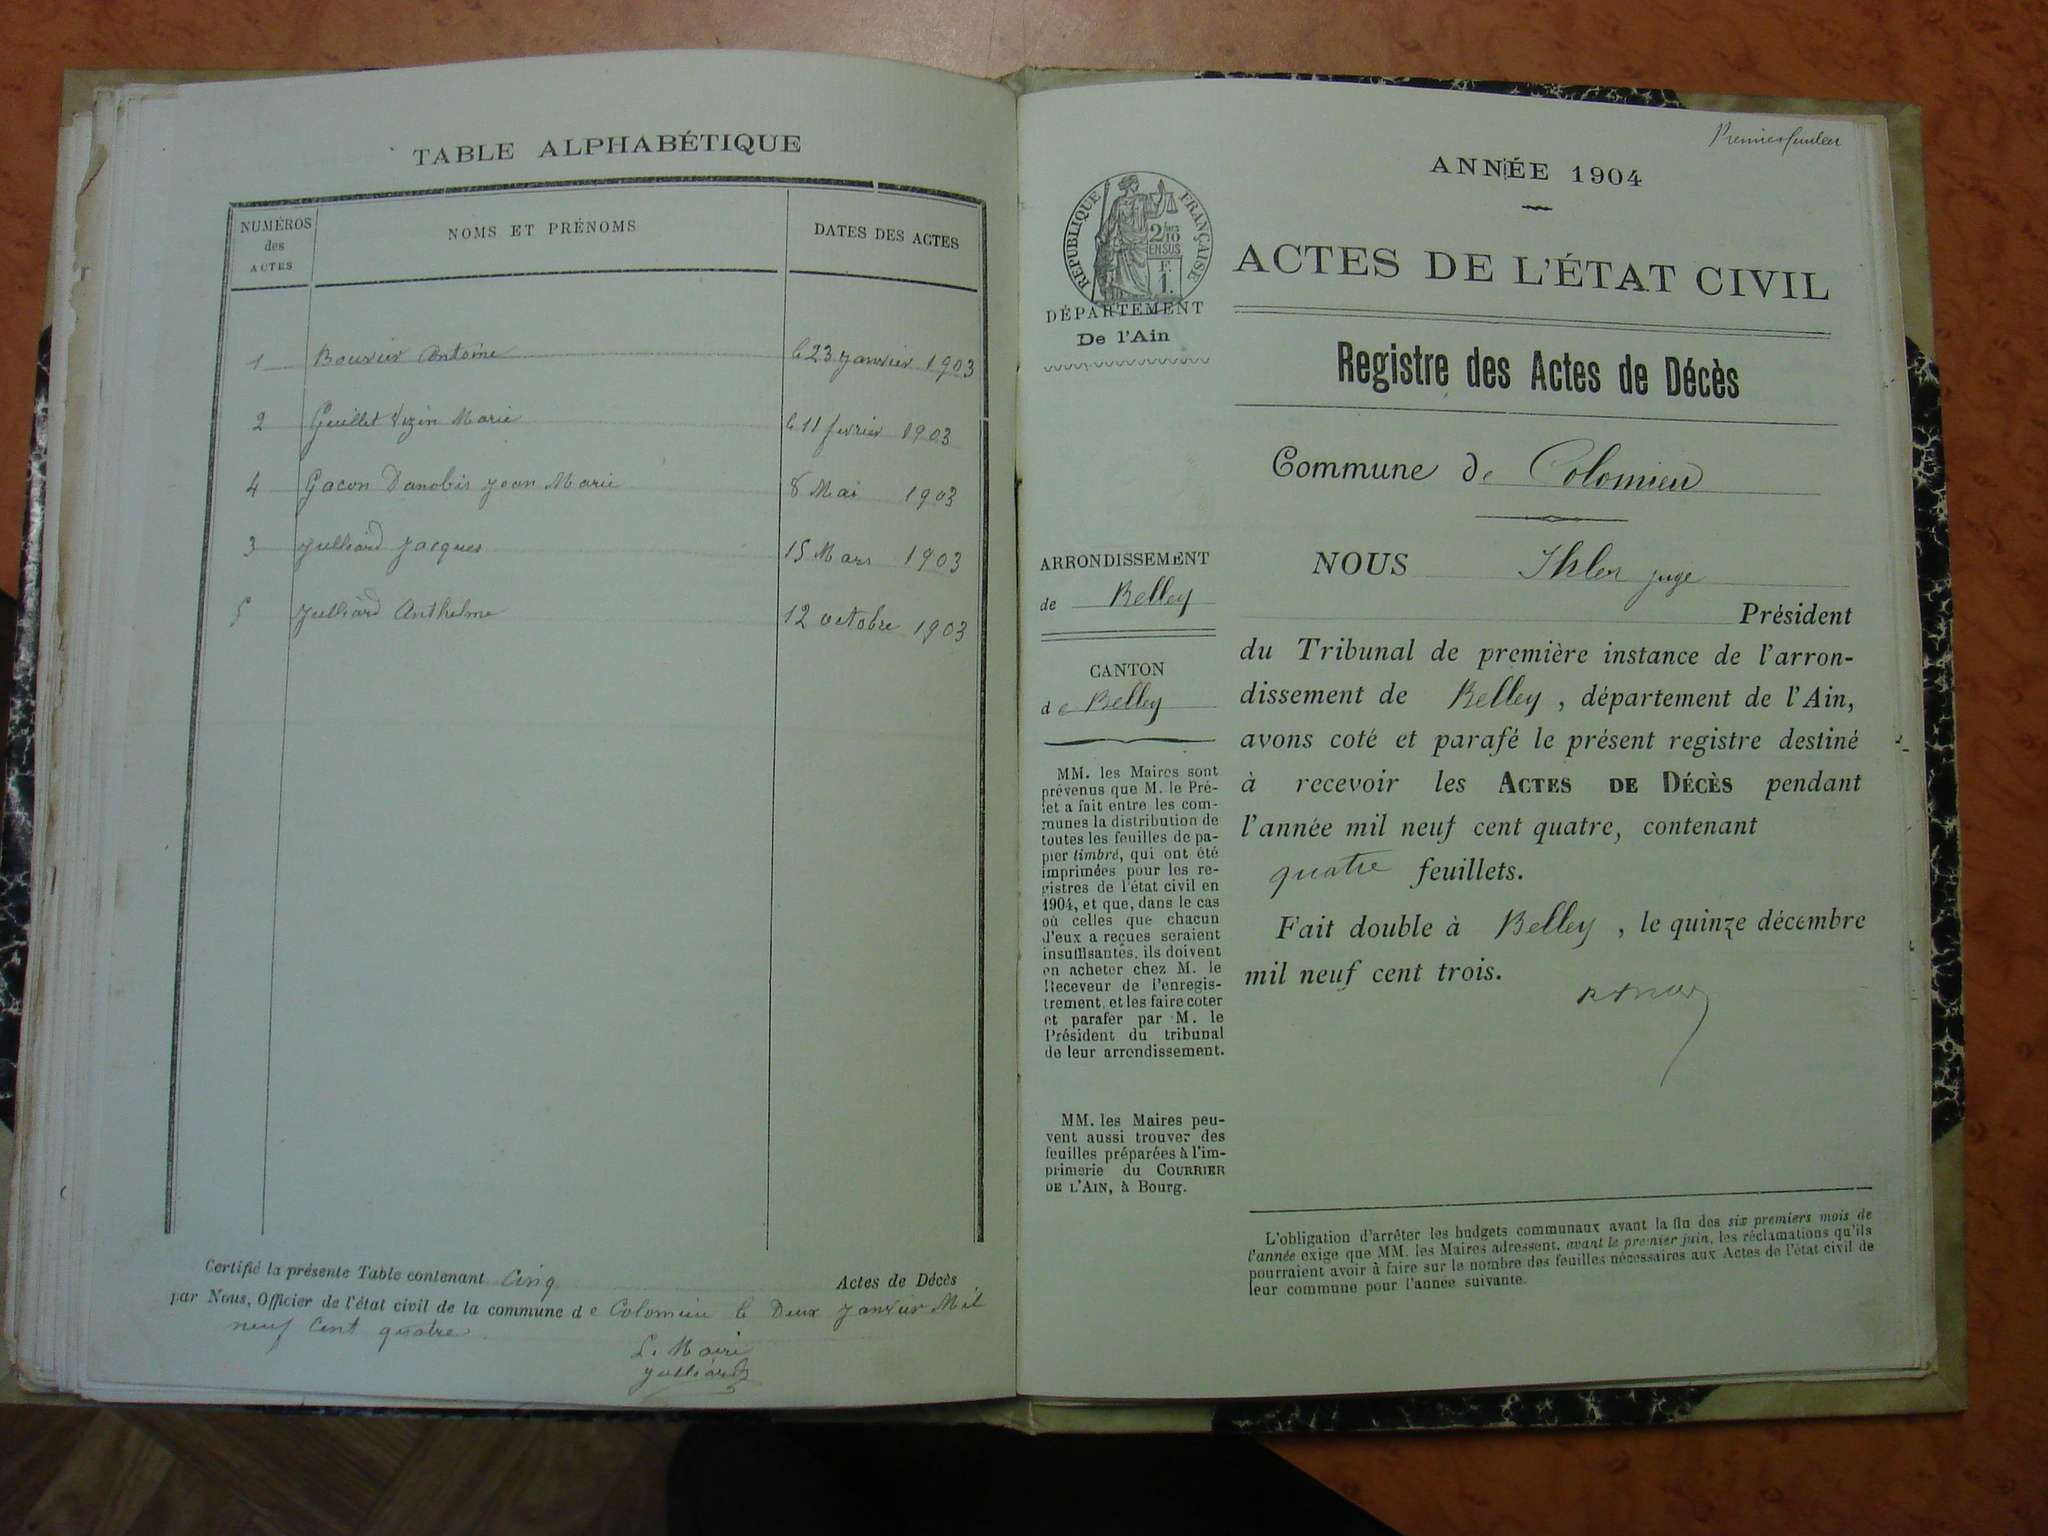 TABLE ALPHABÉTIQUE
NUMÉROS
des
ACTES
NOMS ET PRÉNOMS
DATES DES ACTES
1 Bouvier Antoine le 23 janvier 1903
2 Guillet Marie le 11 fevrier 1903
4 Gacon Danobis Jean Marie 8 Mai 1903
3 Julliard Jacques 15 Mars 1903
5 Julliard Anthelme 12 octobre 1903
Certifié la présente Table contenant Cinq Actes de Décès
par Nous, Officier de l'état civil de la commune de Colomieu le Deux Janvier Mil
neuf Cent quatre
Le Maire
Julliard
Premier feuillet
ANNÉE 1904
RÉPUBLIQUE FRANÇAISE
2/10
EN SUS
F.
1.
ACTES DE L'ÉTAT CIVIL
DÉPARTEMENT
De l'Ain
Registre des Actes de Décès
Commune de Colomieu
ARRONDISSEMENT
de Belley
CANTON
de Belley
MM. les Maires sont
prévenus que M. le Pré-
fet a fait entre les com-
munes la distribution de
toutes les feuilles de pa-
pier timbré, qui ont été
imprimées pour les re-
gistres de l'état civil en
1904, et que, dans le cas
où celles que chacun
d'eux a reçues seraient
insuffisantes, ils doivent
en acheter chez M. le
Receveur de l'enregis-
trement, et les faire coter
et parafer par M. le
Président du tribunal
de leur arrondissement.
MM. les Maires peu-
vent aussi trouver des
feuilles préparées à l'im-
primerie du COURRIER
DE L'AIN, à Bourg.
NOUS Ihler juge
Président
du Tribunal de première instance de l'arron-
dissement de Belley, département de l'Ain,
avons coté et parafé le présent registre destiné
à recevoir les ACTES DE DÉCÈS pendant
l'année mil neuf cent quatre, contenant
quatre feuillets.
Fait double à Belley, le quinze décembre
mil neuf cent trois.
L'obligation d'arrêter les budgets communaux avant la fin des six premiers mois de
l'année exige que MM. les Maires adressent, avant le premier juin, les réclamations qu'ils
pourraient avoir à faire sur le nombre des feuilles nécessaires aux Actes de l'état civil de
leur commune pour l'année suivante.